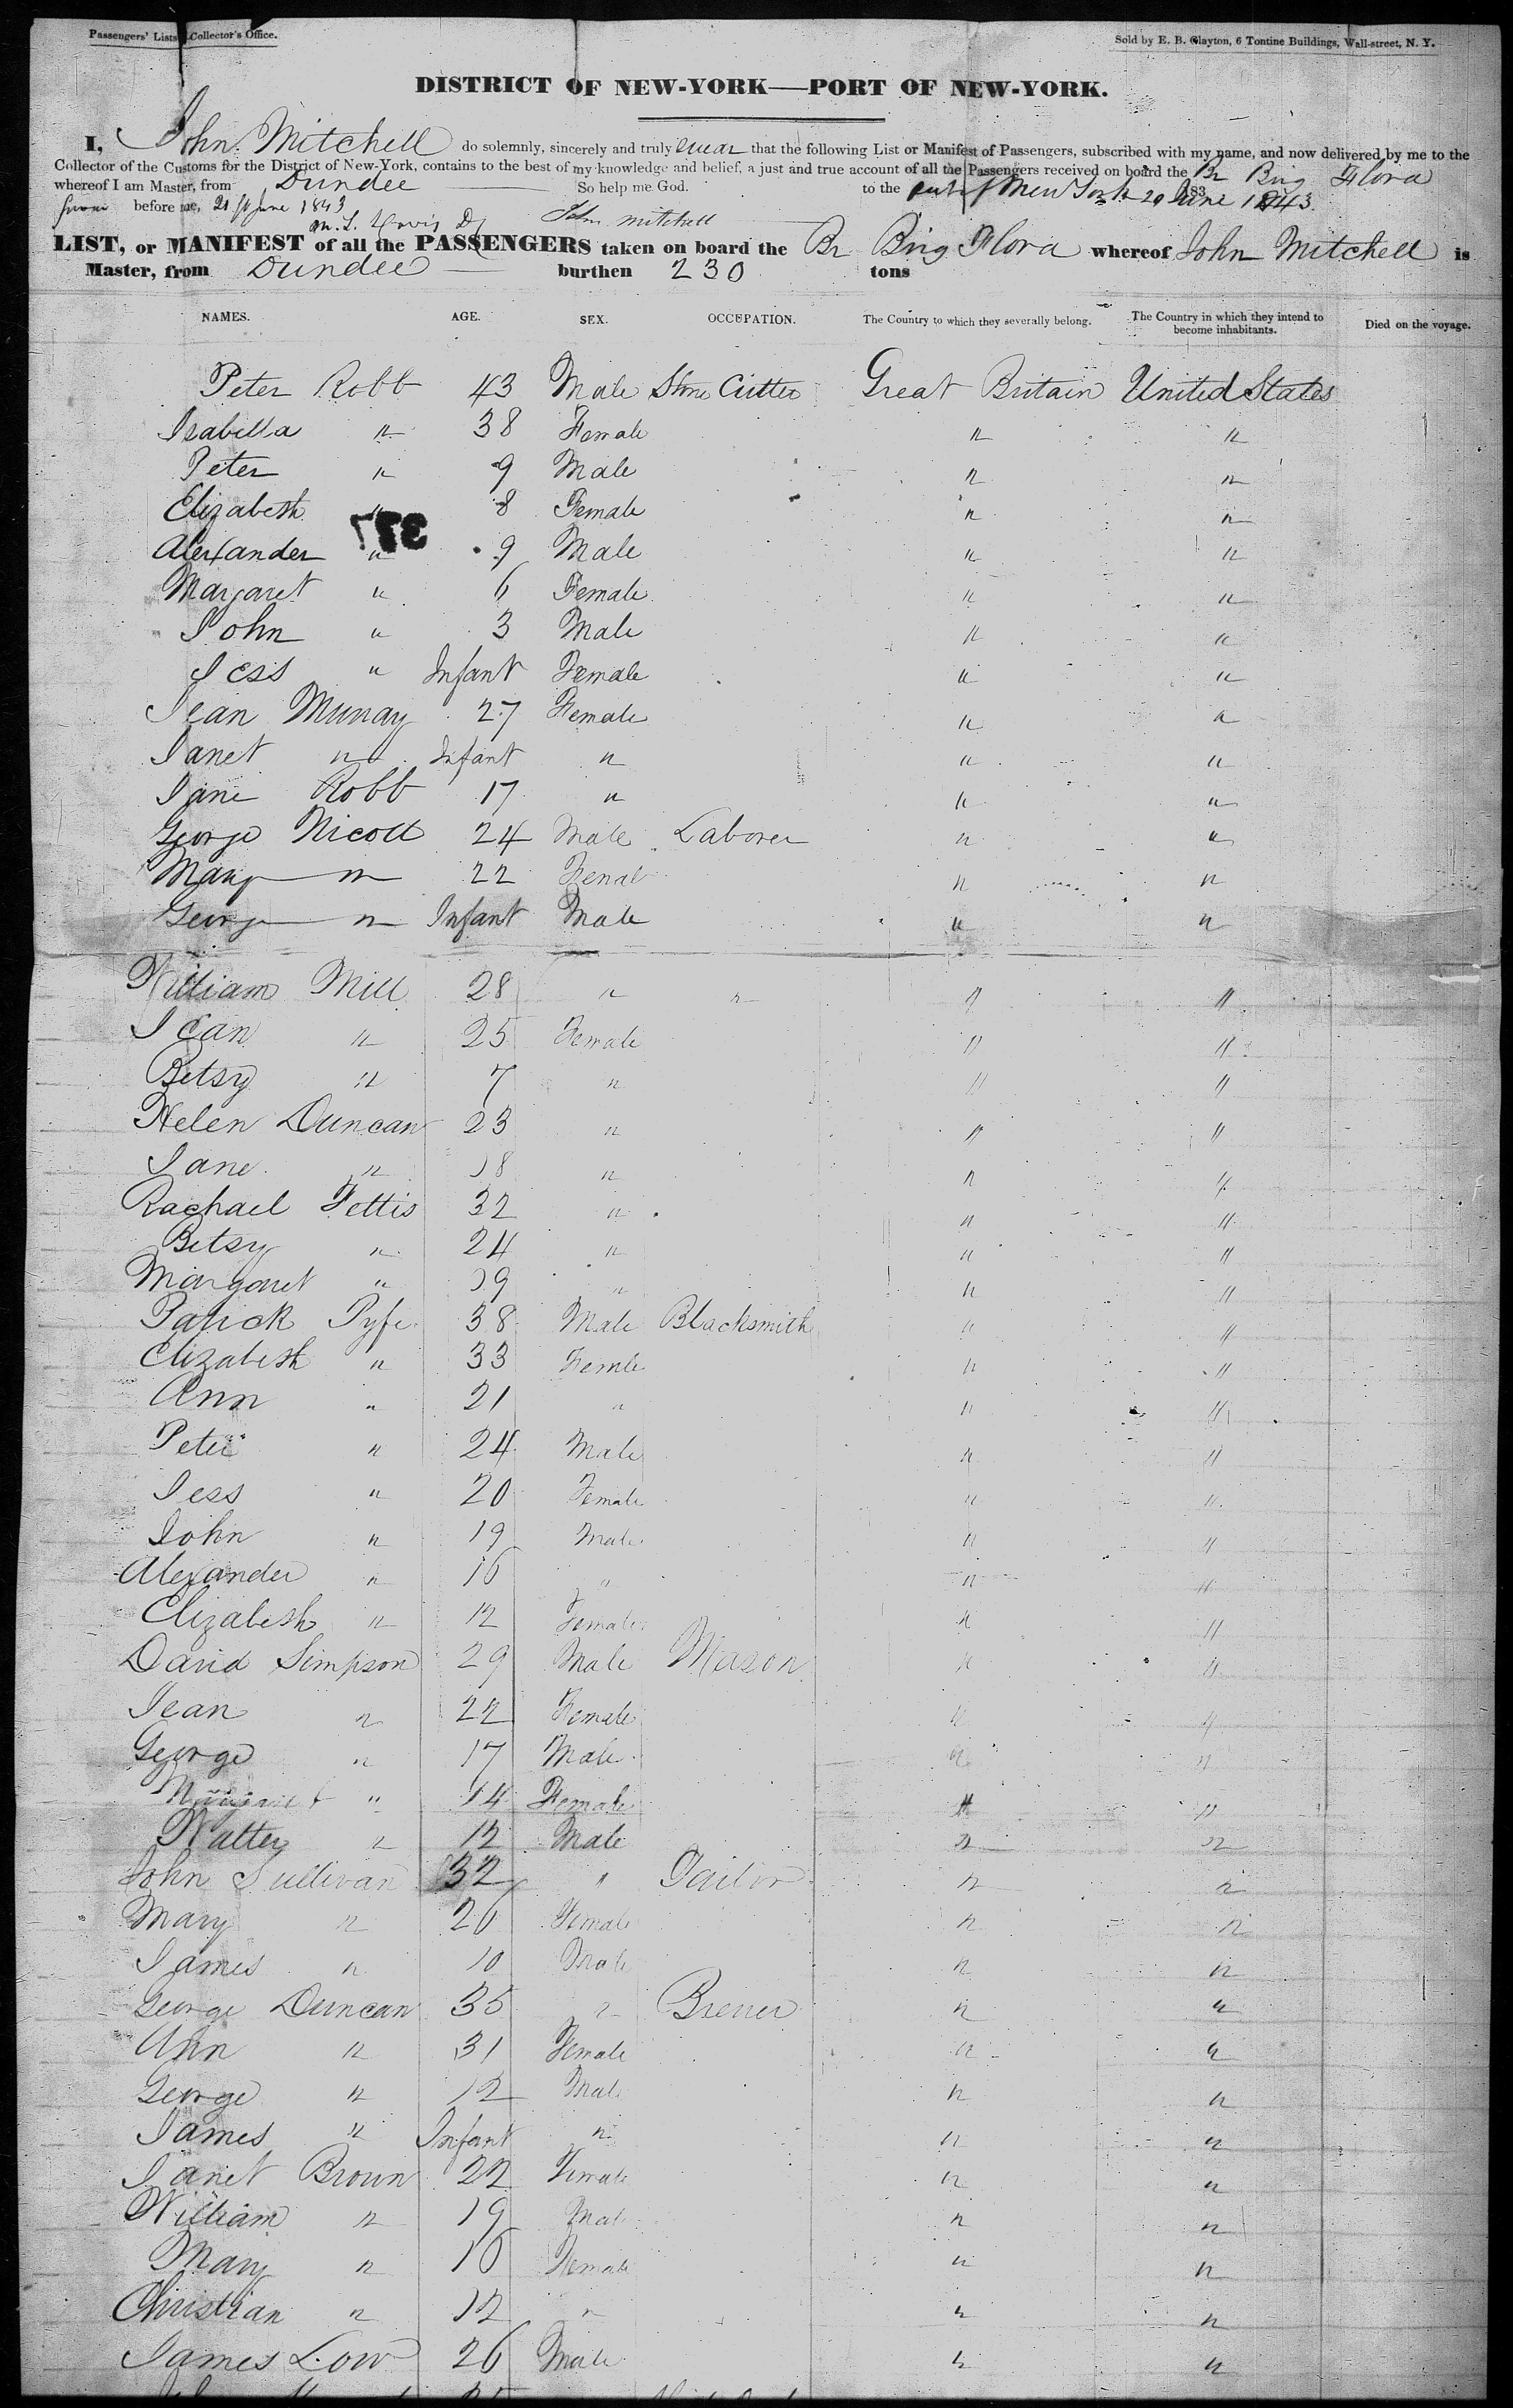 Passengers' Lists Collector's Office.
Sold by E. B. Clayton, 6 Tontine Buildings, Wall-street, N. Y.
DISTRICT OF NEW-YORK—PORT OF NEW-YORK.
I, John Mitchell do solemnly, sincerely and truly swear that the following List or Manifest of Passengers, subscribed with my name, and now delivered by me to the
Collector of the Customs for the District of New-York, contains to the best of my knowledge and belief, a just and true account of all the Passengers received on board the Br Brig Flora
whereof I am Master, from Dundee So help me God. to the port of New York 20 June 1843
before me, 20 June 1843 John Mitchell
LIST, or MANIFEST of all the PASSENGERS taken on board the Br Brig Flora whereof John Mitchell is
Master, from Dundee burthen 230 tons
NAMES. AGE. SEX. OCCUPATION. The Country to which they severally belong. The Country in which they intend to become inhabitants. Died on the voyage.
Peter Robb 43 Male Stone Cutter Great Britain United States
Isabella " 38 Female " "
Peter " 9 Male " "
Elizabeth " 8 Female " "
Alexander " 9 Male " "
Margaret " 6 Female " "
John " 3 Male " "
Jess " Infant Female " "
Jean Murray 27 Female " "
Janet " Infant " " "
Jane Robb 17 " " "
George Nicoll 24 Male Laborer " "
Mary " 22 Female " "
George " Infant Male " "
William Mill 28 " " " "
Jean " 25 Female " "
Betsy " 7 " " "
Helen Duncan 23 " " "
Jane " 18 " " "
Rachael Fettis 32 " " "
Betsy " 24 " " "
Margaret " 19 " " "
Patick Pyfe 38 Male Blacksmith " "
Elizabeth " 33 Femle " "
Ann " 21 " " "
Peter " 24 Male " "
Jess " 20 Female " "
John " 19 Male " "
Alexander " 16 " " "
Elizabeth " 12 Female " "
David Simpson 29 Male Mason " "
Jean " 22 Female " "
George " 17 Male " "
Margaret " 14 Female " "
Walter " 12 Male " "
John Sullivan 32 " Tailor " "
Mary " 26 Female " "
James " 10 Male " "
George Duncan 35 " Brewer " "
Ann " 31 Female " "
George " 12 Male " "
James " Infant " " "
Janet Brown 22 Female " "
William " 19 Male " "
Mary " 16 Female " "
Christian " 12 " " "
James Low 26 Male " "